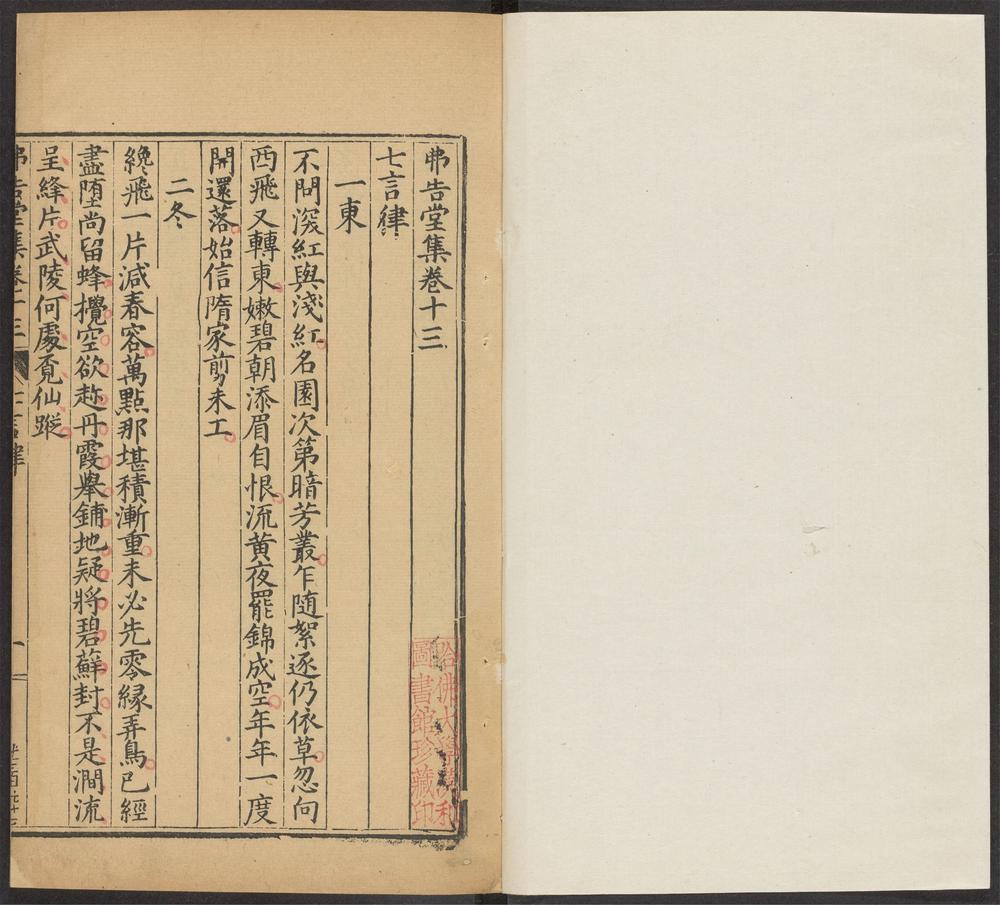 弗告堂集卷十三
七言律
一東
不問深紅與淺紅名園次第暗芳叢乍隨絮逐仍依草忽向
西飛又轉東嫩碧朝添眉自恨流黃夜罷錦成空年年一度
開還落始信隋家剪未工
二冬
纔飛一片減春容萬點那堪積漸重未必先零緣弄鳥已經
盡墮尚留蜂攪空欲趂丹霞舉鋪地疑將碧蘚封不是澗流
呈絳片武陵何處覔仙蹤
弗告堂集卷十三
七言律
一
哈佛大學漢和
圖書館珍藏印